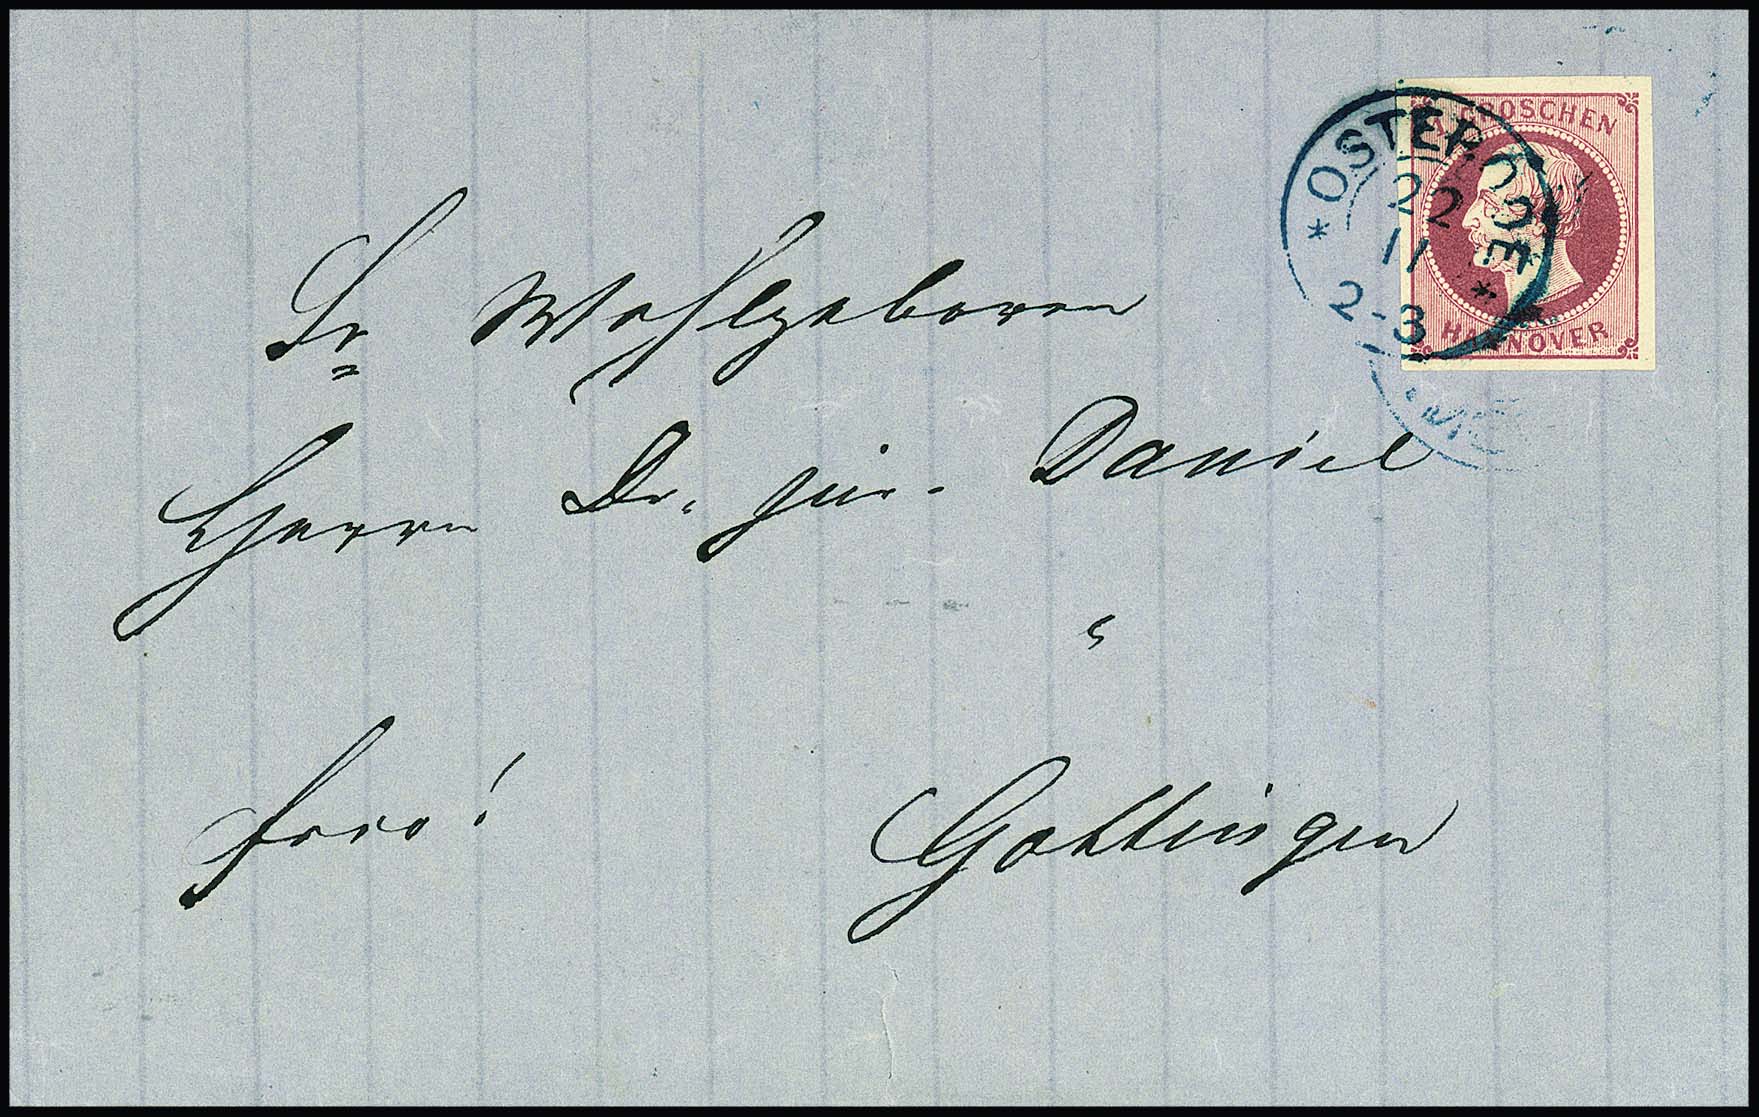 1 GROSCHEN
HANNOVER
* OSTERODE *
22
11
2-3
Sr Wohlgeboren
Herrn Dr. jur. Daniel
Göttingen
frco!